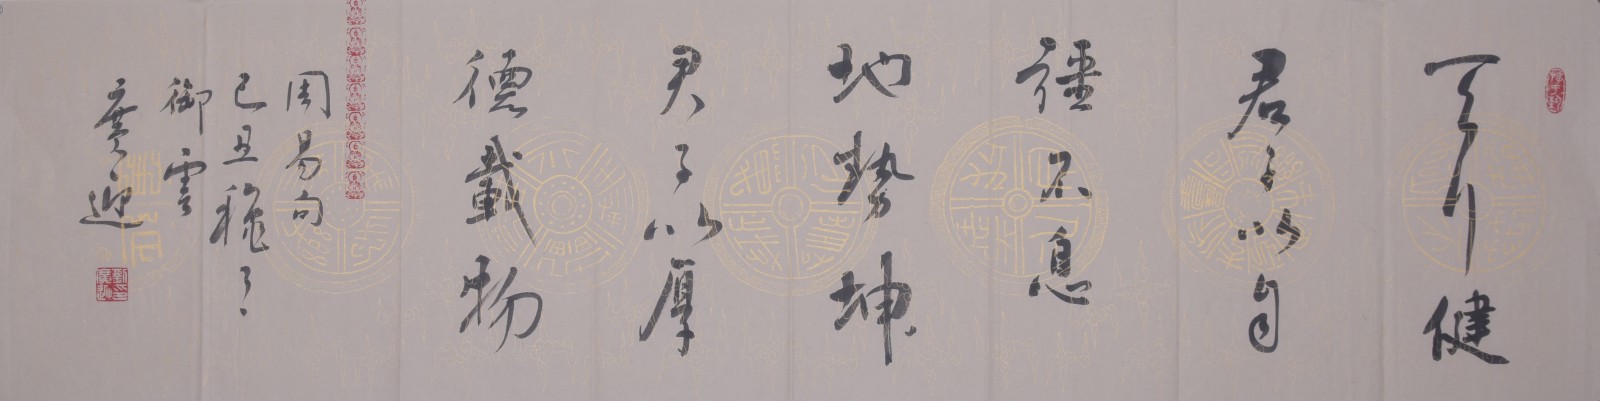 天行健
君子以自
彊不息
地势坤
君子以厚
德载物
周易句
己丑秋月
御雲
賡迎